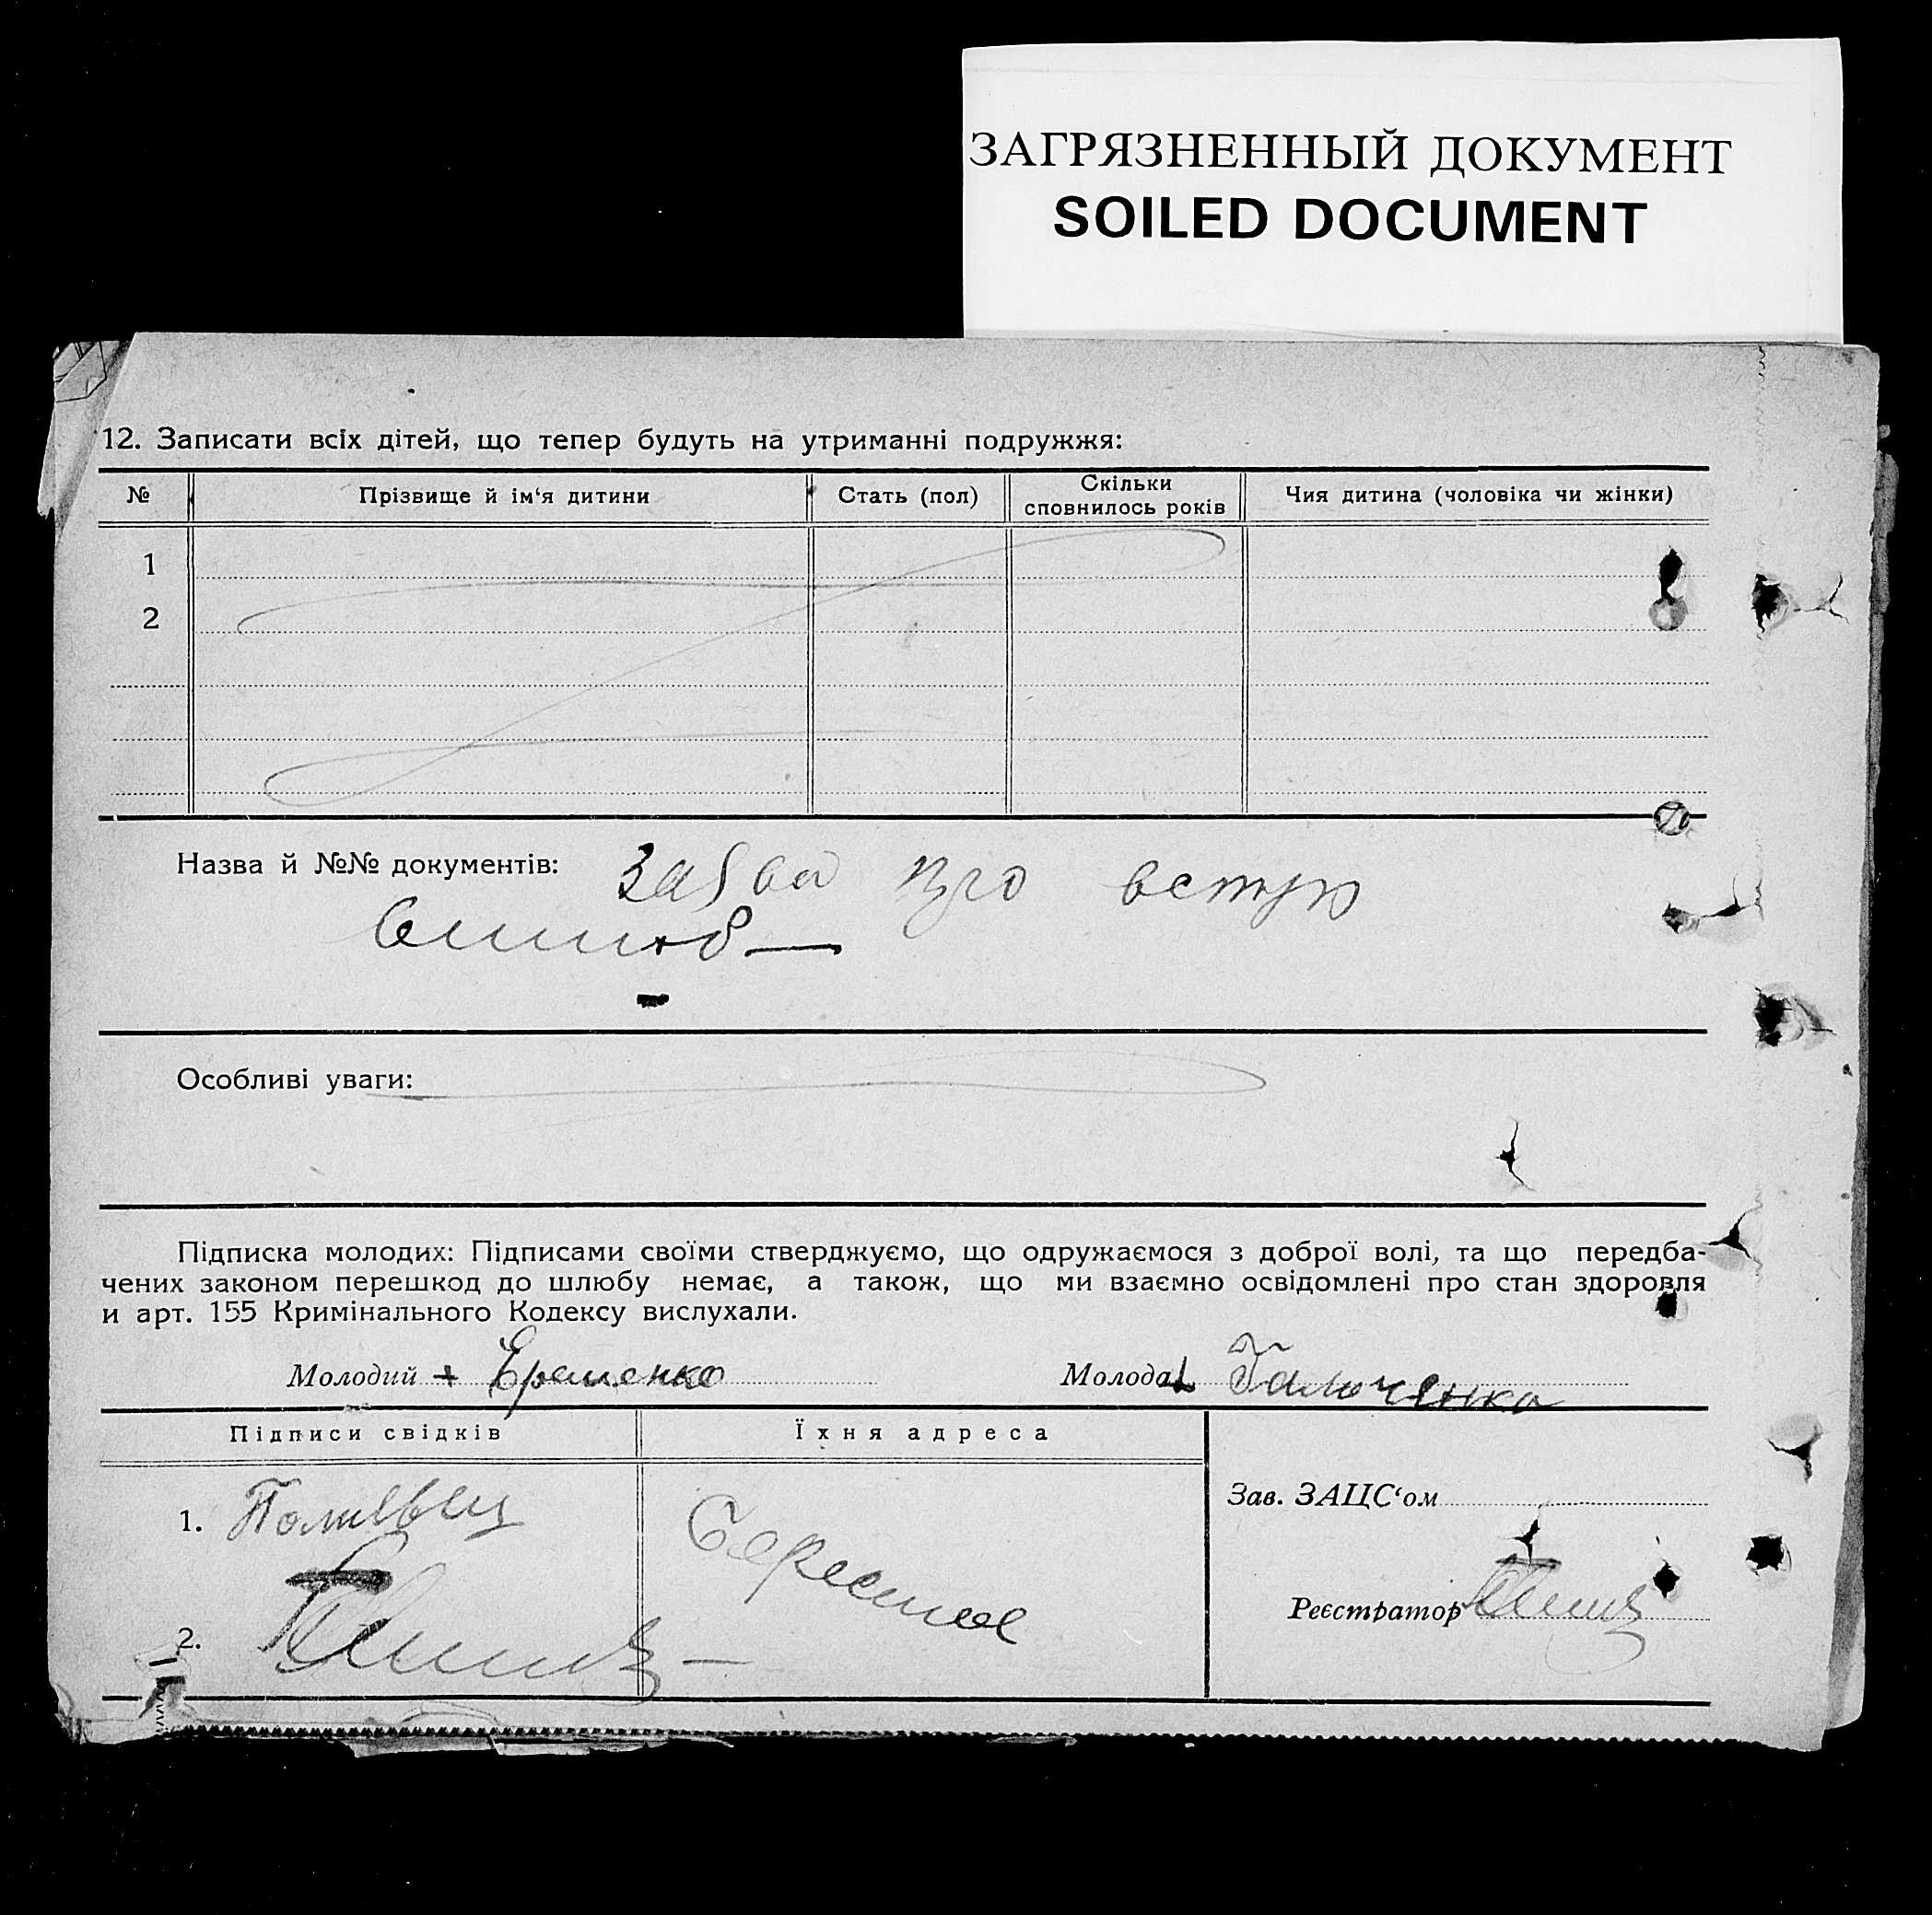 ЗАГРЯЗНЕННЫЙ ДОКУМЕНТ
SOILED DOCUMENT
12. Записати всіх дітей, що тепер будуть на утриманні подружжя:
№ Прізвище й ім‘я дитини Стать (пол) Скільки сповнилось років Чия дитина (чоловіка чи жінки)
1
2
Назва й №№ документів: Заява про вступ
в шлюб —
Особливі уваги:
Підписка молодих: Підписами своїми стверджуємо, що одружаємося з доброї волі, та що передба-
чених законом перешкод до шлюбу немає, а також, що ми взаємно освідомлені про стан здоровля
и арт. 155 Кримінального Кодексу вислухали.
Молодий + Єременко Молода
Підписи свідків Їхня адреса
Зав. ЗАЦС‘ом
1.
Реєстратор
2.